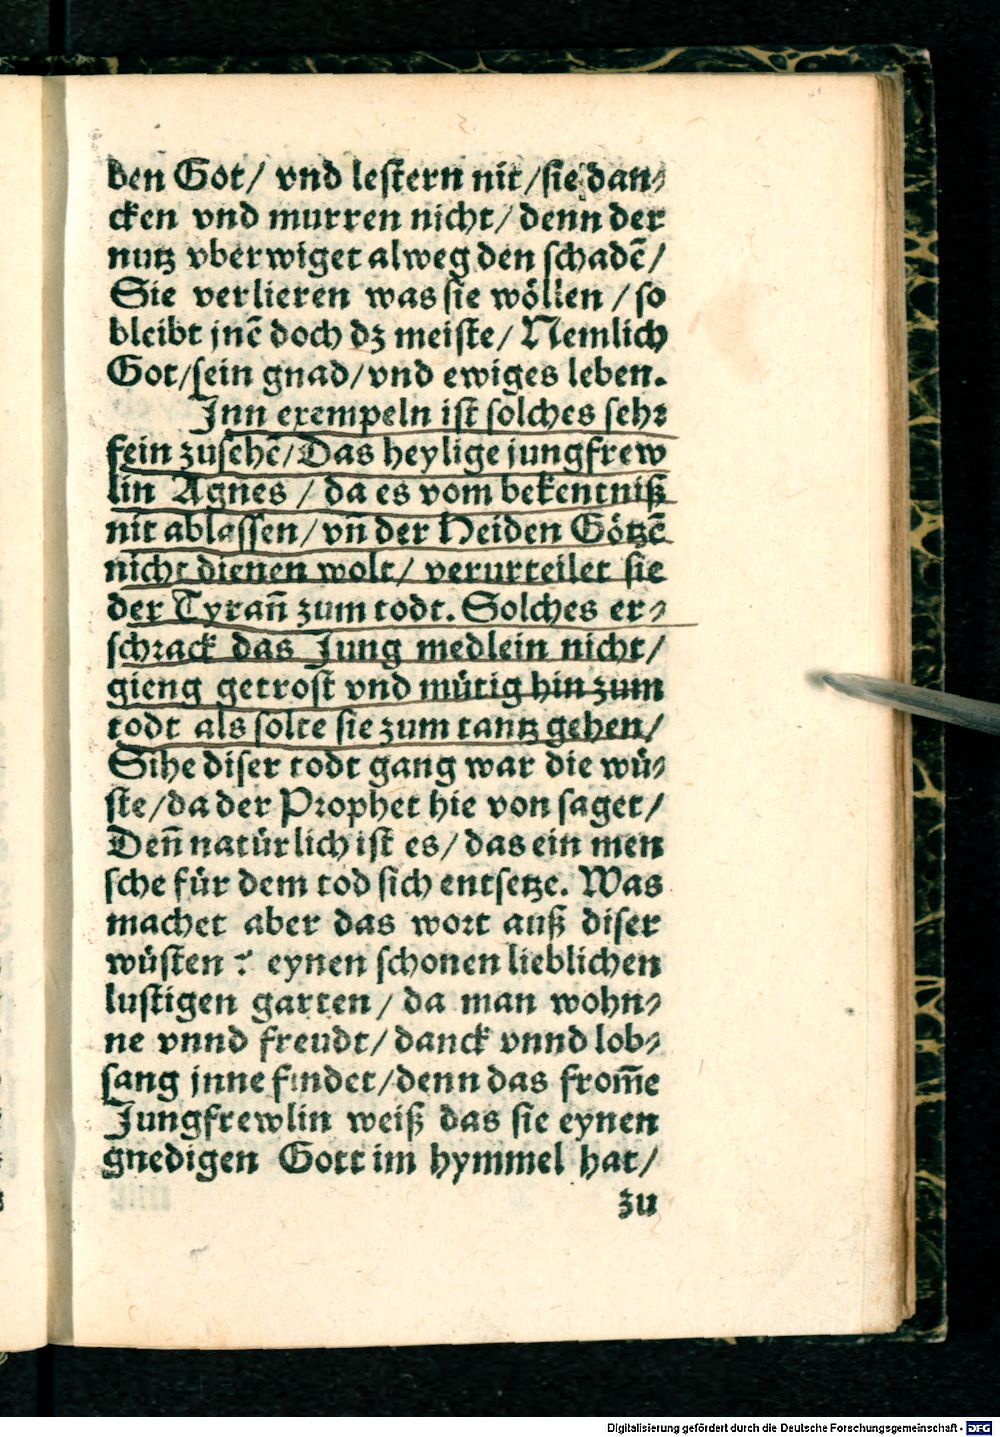 ben Got/ vnd lestern nit/sie dan⸗
cken vnd murren nicht/ denn der
nutz vberwiget alweg den schadē/
Sie verlieren was sie wöllen /so
bleibt jnē doch dz meiste/ Nemlich
Got/sein gnad/vnd ewiges leben.
Jnn exempeln ist solches sehr
fein zusehē/Das heylige jungfrew
lin Agnes / da es vom bekentniß
nit ablassen/vn̄ der Heiden Götzē
nicht dienen wolt/ verurteilet sie
der Tyran̄ zum todt. Solches er⸗
schrack das Jung medlein nicht/
gieng getrost vnd mütig hin zum
todt als solte sie zum tantz gehen/
Sihe diser todt gang war die wü⸗
ste/da der Prophet hie von saget/
Den̄ natürlich ist es/ das ein men
sche für dem tod sich entsetze. Was
machet aber das wort auß diser
wüsten ? eynen schonen lieblichen
lustigen garten/ da man wohn⸗
ne vnnd freudt/danck vnnd lob⸗
sang jnne findet/denn das from̄e
Jungfrewlin weiß das sie eynen
gnedigen Gott im hymmel hat/
zu
Digitalisierung gefördert durch die Deutsche Forschungsgemeinschaft - DFG